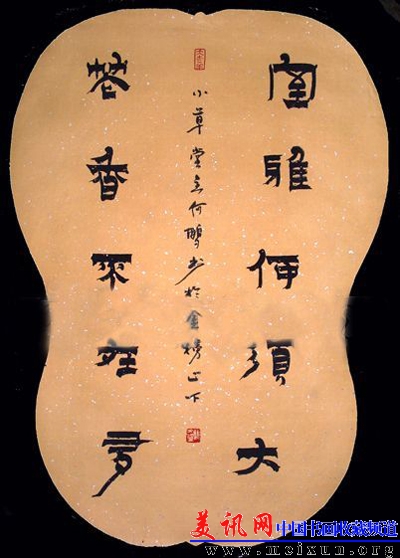 室雅何須大
花香不在多
小草堂主何鹏书於金榜山下
美讯网 中国书画收藏频道
www.meixun.org